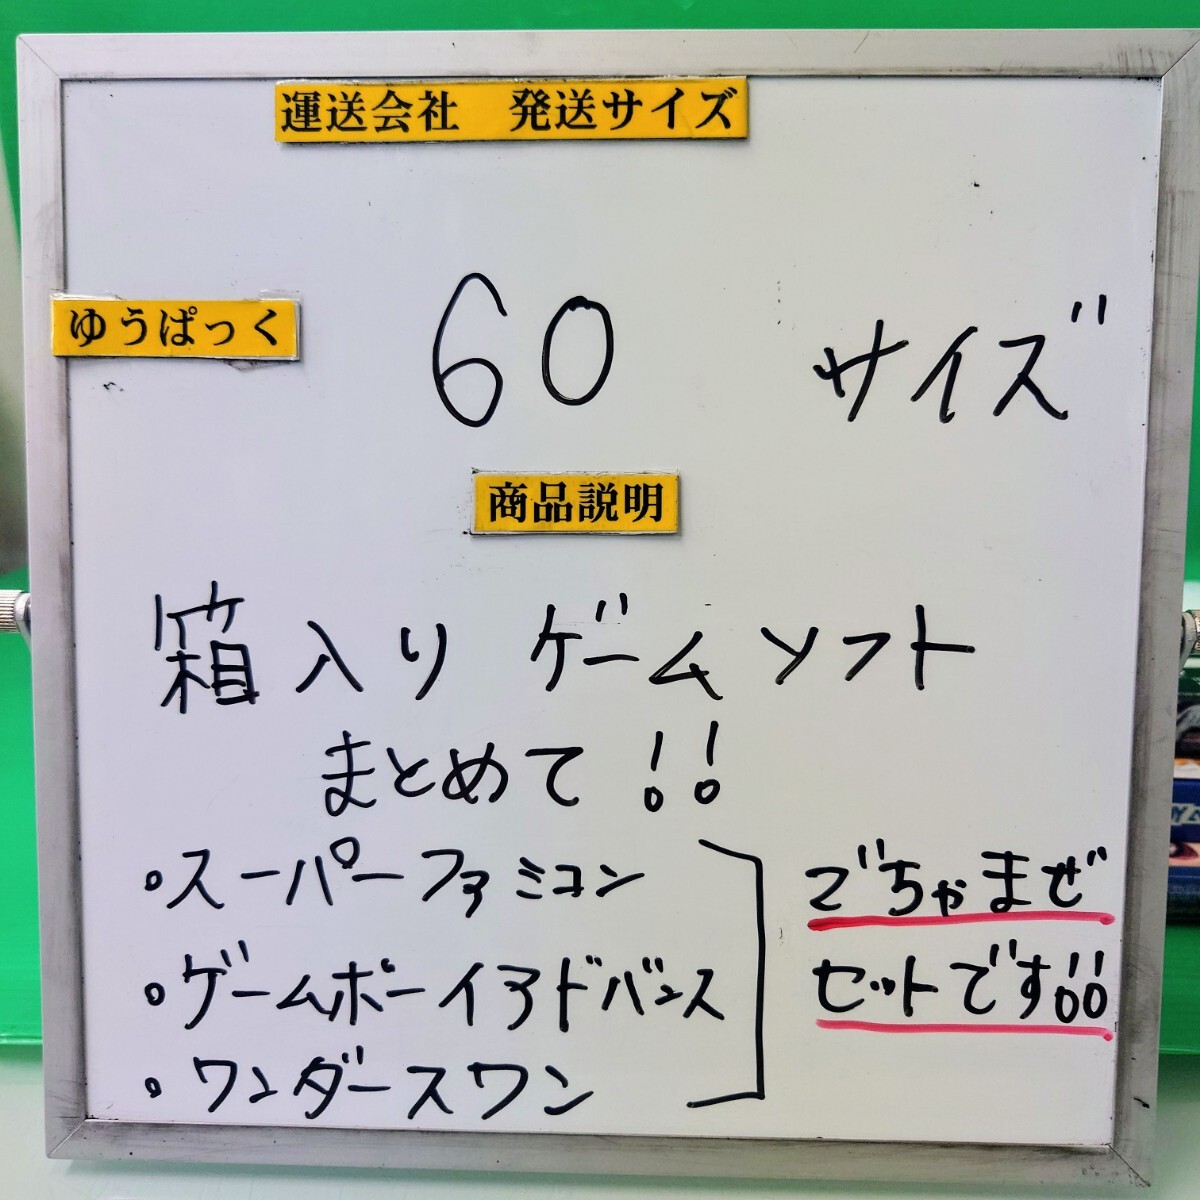 運送会社　発送サイズ
ゆうぱっく 60 サイズ
商品説明
箱入り ゲームソフト
まとめて!!
・スーパーファミコン
・ゲームボーイアドバンス
・ワンダースワン
ごちゃまぜ
セットです!!